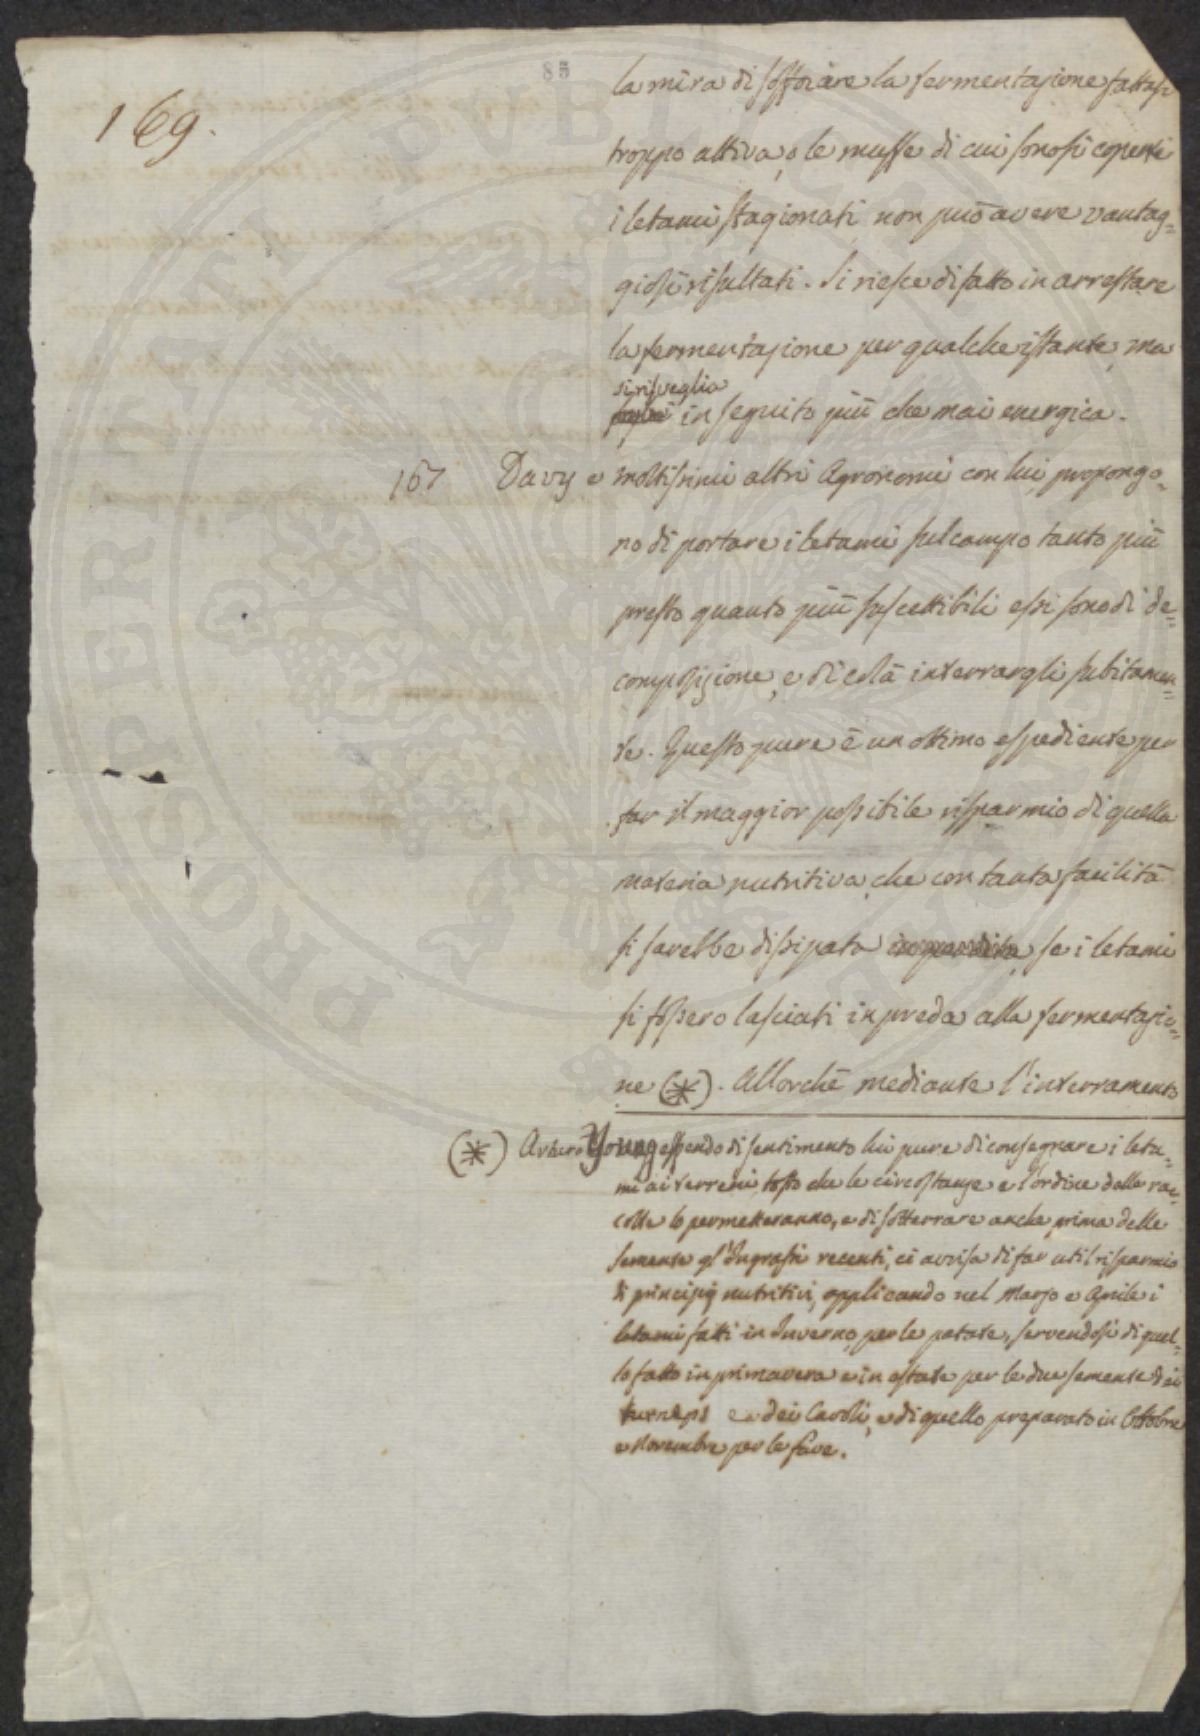 85
169.
la mira di soffocare la fermentazione fattasi
troppo attiva, o le muffe di cui sonosi coperti
i letami stagionati non può avere vantag=
giosi risultati. Si riesce di fatto in arrestare
la fermentazione per qualche istante, ma
si risveglia
in seguito più che mai energica.
167 Davy e moltissimi altri Agronomi con lui, propongo=
no di portare i letami sul campo tanto più
presto quanto più suscettibili essi sono di de=
composizione, e di colà interrargli subitamen=
te. Questo pure è un ottimo espediente per
far il maggior possibile risparmio di quella
materia nutritiva, che con tanta facilità
si sarebbe dissipata se i letami
si fossero lasciati in preda alla fermentazio=
ne (*). Allorchè mediante l'interramento
(*) Arturo Young essendo di sentimento lui pure di consegnare i leta=
mi ai terreni, tosto che le circostanze e l'ordine delle rac=
colte lo permetteranno, e di sotterrare anche prima delle
semente gl'Ingrassi recenti, ci avvisa di far util risparmio
di principj nutritivi, applicando nel Marzo e Aprile i
letami fatti in Inverno, per le patate, servendosi di quel=
lo fatto in primavera e in estate per le due semente dei
turneps e dei Cavoli, e di quello preparato in Ottobre
e Novembre per le fave.
PROSPERITATI PVBLICAE